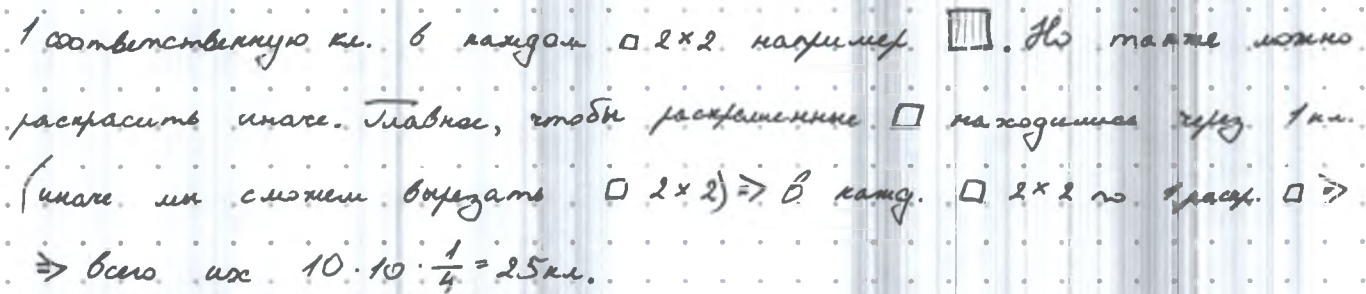 1 соответственную кл. в каждом □ 2×2 например □. Но также можно
раскрасить иначе. Главное, чтобы раскрашенные □ находились через 1 кл.
(иначе мы сможем вырезать □ 2×2) => В кажд. □ 2×2 по 1 раскр. □ =>
=> всего их 10·10·1/4 = 25кл.